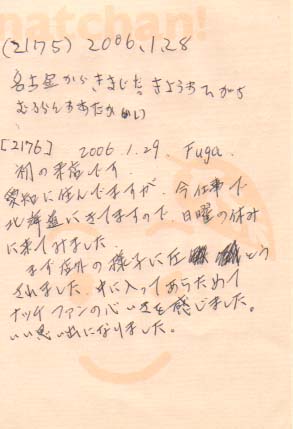 natchan!
(2175) 2006.1.28
名古屋からきました。きようちひがち
むららんもあたか めい
[2176] 2006.1.29. Fuga.
初の来店です.
愛知に住んでますが、今仕事で
北海道にきてますので、日曜の休み
に来てみました.
まず店外の様子に圧とう
されました。中に入ってあらためて
ナッチファンの心いきを感じました。
いい思い出になりました。